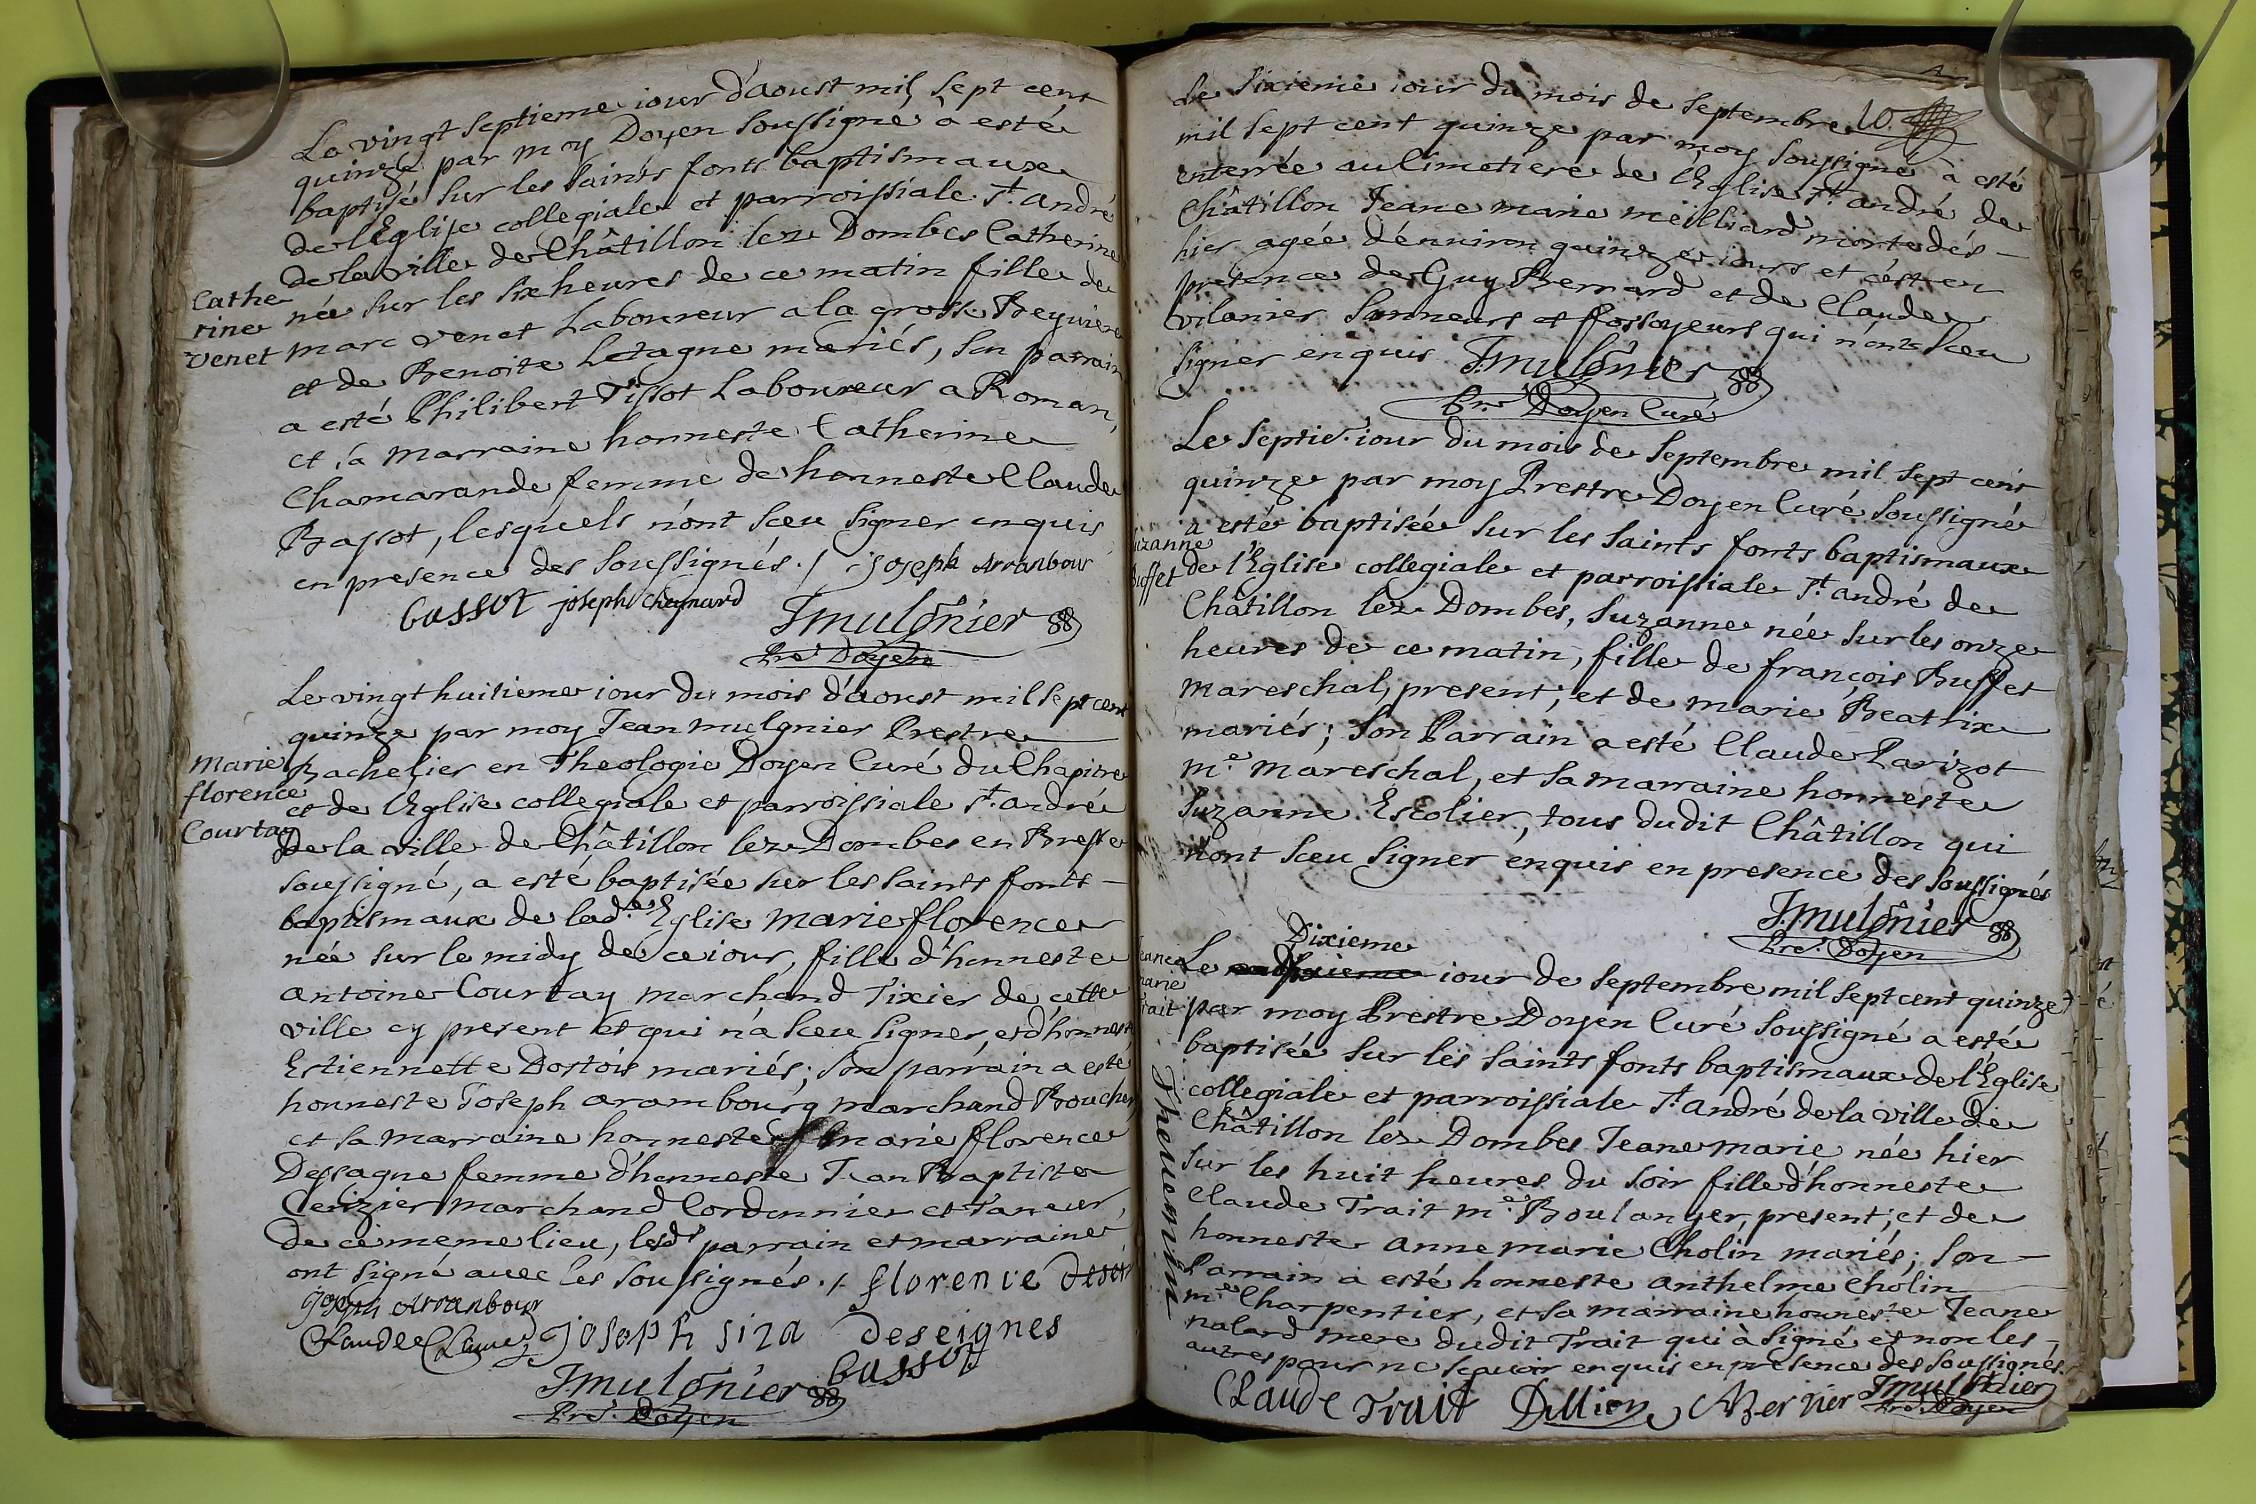 Le vingt septieme iour d'aoust mil sept cent
quinze par moy Doyen soussigné a esté
baptisé sur les saints fonts baptismaux
de l'Eglise collegiale et parroissiale St. andré
de la ville de Châtillon lez Dombes Catherine
née sur les six heures de ce matin fille de
Cathe
rine
Venet
marc Venet Laboureur a la grosse
et de Benoite Letagne mariés, son parrain
a esté Philibert Tissot Laboureur a Roman,
et sa marraine honneste Catherine
Chamarande femme de honneste Claude
lesquels n'ont sceu signer enquis
en presence des soussignés ./ joseph Arranbour
bassot joseph cheynard
Jmulgnier
Pre. Doyen
Le vingt huitieme iour du mois d'aoust mil sept cent
quinze par moy Jean mulgnier Prestre
Bachelier en Theologie Doyen Curé du Chapitre
et de l'Eglise collegiale et parroissiale St. andré
de la ville de Châtillon lez Dombes en Bresse
Marie
florence
Courtay
soussigné, a esté baptisée sur les saints fonts
baptismaux de lad.e Eglise marie florence
née sur le midy de ce iour, fille d'honneste
antoine Courtay marchand Tixier de cette
ville cy present et qui n'a sceu signer, et d'honneste
Estiennette Dortois mariés; son parrain a esté
honneste Joseph arambourg marchand Boucher
et sa marraine honneste marie florence
Dessagne femme d'honneste Jean Baptiste
marchand Cordonnier et Taneur,
de ce meme lieu, lesds parrain et marraine
ont signé avec les soussignés ./. florence
Joseph Arranbour
Claude joseph siza deseignes
Jmulgnier bassot
Pre. Doyen
Le sixieme iour du mois de Septembre
10.
mil sept cent quinze par moy soussigné a esté
enterrée au Cimetiere de l'Eglise St. andré de
Châtillon Jeane marie meilliard morte dés
hier agée d'environ quinze iours et c'est en
presence de Guy Bernard et de Claude
Vilanier sonneurs et fossoyeurs qui n'ont sceu
signer enquis Jmulgnier
Pre Doyen Curé
Le septie. iour du mois de Septembre mil sept cent
quinze par moy Prestre Doyen Curé soussigné
a esté baptisée sur les saints fonts baptismaux
uzanne
Buffet
de l'Eglise collegiale et parroissiale St. andré de
Châtillon lez Dombes, Suzanne née sur les onze
heures de ce matin, fille de françois Buffet
mareschal, present, et de marie Beatrix
mariés; son Parrain a esté Claude Parizot
me. mareschal, et sa marraine honneste
Suzanne Escolier, tous dudit Châtillon qui
n'ont sceu signer enquis en presence des soussignés
Jmulgnier
Pre. Doyen
Dixieme
Le iour de Septembre mil sept cent quinze
Jeane
marie
Trait
par moy Prestre Doyen Curé soussigné a esté
baptisée sur les saints fonts baptismaux de l'Eglise
collegiale et parroissiale St. andré de la ville de
Châtillon lez Dombes Jeane marie née hier
sur les huit heures du soir fille d'honneste
Claude Trait me. Boulanger, present; et de
honneste anne marie Cholin mariés; son
Parrain a esté honneste anthelme Cholin
me. Charpentier, et sa marraine honneste Jeane
nalard mere dudit Trait qui a signé et non les
autres pour ne sçavoir enquis en presence des soussignés.
Thevenin
Claude Trait Bernier Jmulgnier
Pre. Doyen